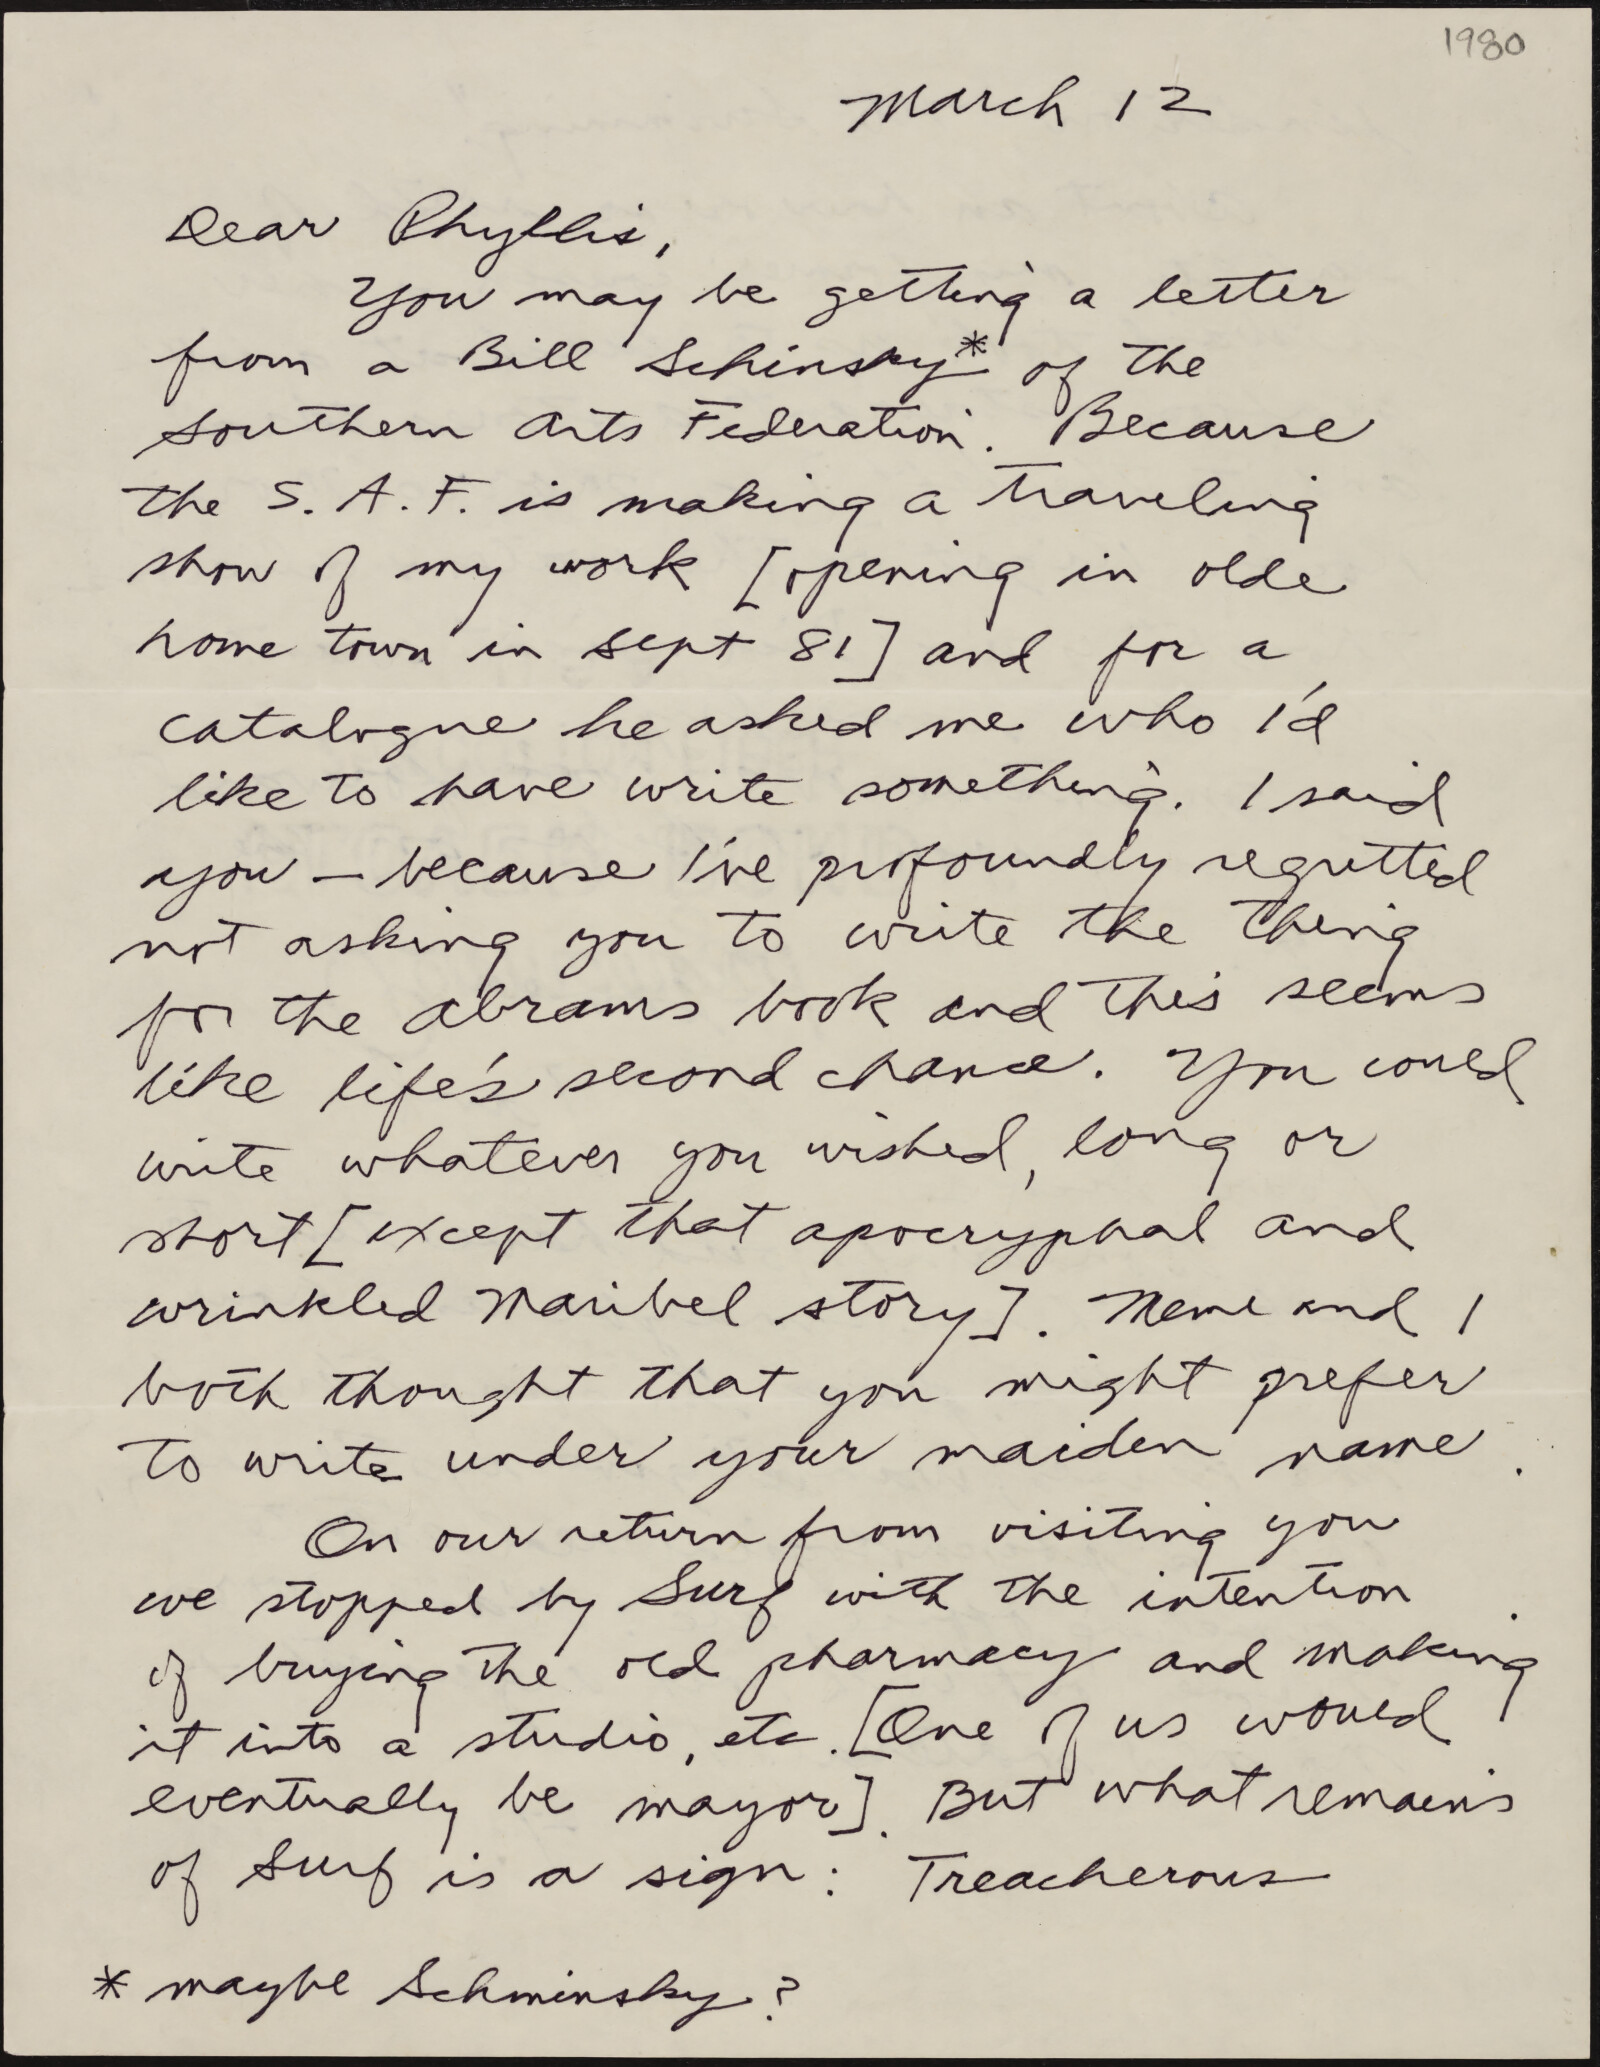 1980
March 12
Dear Phyllis,
You may be getting a letter
from a Bill Schinsky* of the
Southern Arts Federation. Because
the S. A. F. is making a traveling
show of my work [opening in olde
home town in Sept 81] and for a
catalogue he asked me who I'd
like to have write something. I said
you — because I've profoundly regretted
not asking you to write the thing
for the Abrams book and this seems
like life's second chance. You could
write whatever you wished, long or
short [except that apocryphal and
wrinkled Maribel story]. Neme and I
both thought that you might prefer
to write under your maiden name.
On our return from visiting you
we stopped by Surf with the intention
of buying the old pharmacy and making
it into a studio, etc. [One of us would
eventually be mayor]. But what remains
of Surf is a sign: Treacherous
* maybe Schminsky?